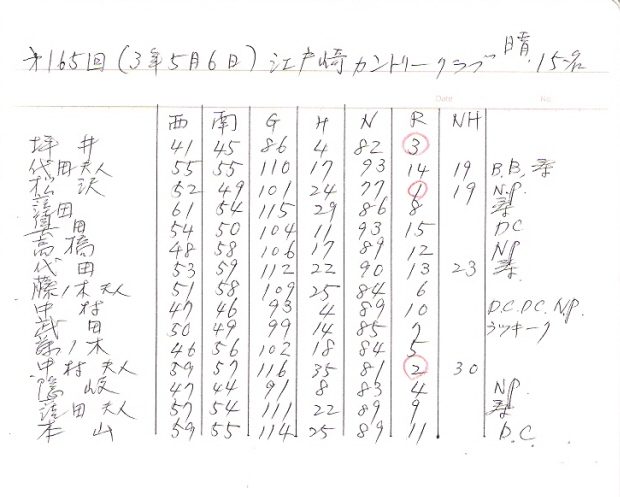 第165回(3年5月6日)江戸崎カントリークラブ 晴 15名
Date No.
西 南 G H N R NH
坪井 41 45 86 4 82 3
代田夫人 55 55 110 17 93 14 19 B.B, 寿
松沢 52 49 101 24 77 1 19 N.P.
田 61 54 115 29 86 8 寿
田 54 50 104 11 93 15 D.C
高橋 48 58 106 17 89 12 N.P
代田 53 59 112 22 90 13 23 寿
藤ノ木夫人 51 58 109 25 84 6
中村 47 46 93 4 89 10 D.C. D.C. N.P.
武田 50 49 99 14 85 7 ラッキーク
藤ノ木 46 56 102 18 84 5
中村夫人 59 57 116 35 81 2 30
隠岐 47 44 91 8 83 4 N.P.
田夫人 57 54 111 22 89 9 寿
本山 59 55 114 25 89 11 D.C.